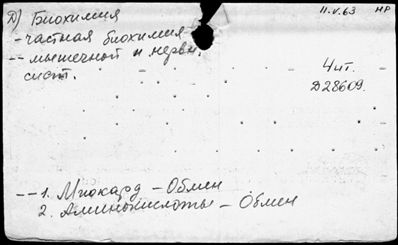 Д) Биохимия
II.V.63 НР
- частная биохимия
-- мышечной и нервн.
сист.
4 ит.
Д28609.
-- 1. Миокард - Обмен
2. Аминокислоты - Обмен